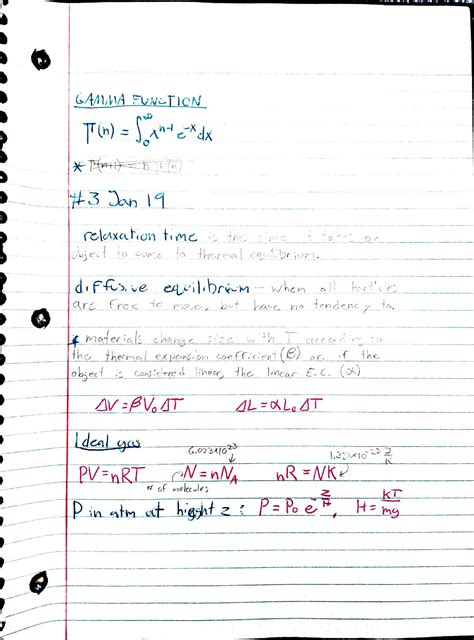 GAMMA FUNCTION
Γ(n) = ∫₀^∞ x^(n-1) e^(-x) dx
* Γ(n+1) = n Γ(n)
#3 Jan 19
relaxation time is the time it takes an
object to come to thermal equilibrium.
diffusive equilibrium - when all particles
are free to move, but have no tendency to.
* materials change size with T according to
the thermal expansion coefficient (β) or, if the
object is considered linear, the linear E.C. (α)
ΔV = βV₀ΔT ΔL = αL₀ΔT
Ideal gas
6.023×10²³
PV = nRT N = nN_A nR = NK
# of molecules
P in atm at hieght z : P = P₀ e^(-z/H), H = KT/mg